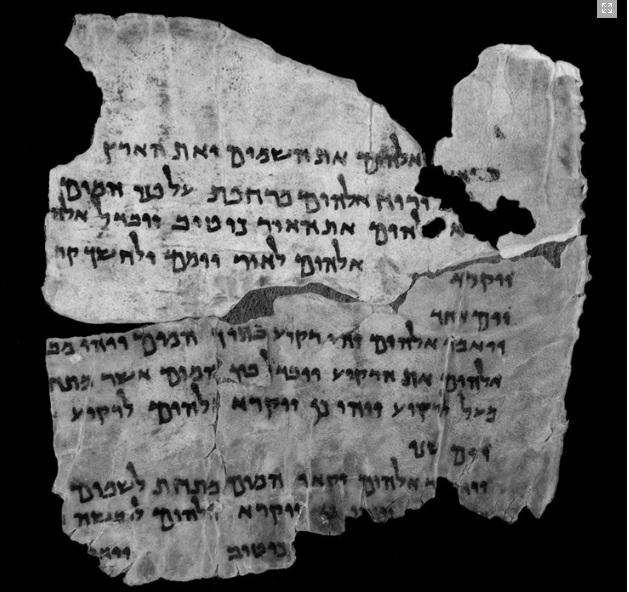 אלהים את השמים ואת הארץ
ורוח אלהים מרחפת על פני המים
אלהים את האור כי טוב ויבדל אלהי
אלהים לאור יומם ולחשך קר
ויקרא
יום אחד
ויאמר אלהים יהי רקיע בתוך המים ויהי מב
אלהים את הרקיע ויבדל בין המים אשר מתח
מעל לרקיע ויהי כן ויקרא אלהים לרקיע
יום שני
אלהים יקאו המים מתחת לשמים
ויקרא אלהים ליבשה
כי טוב